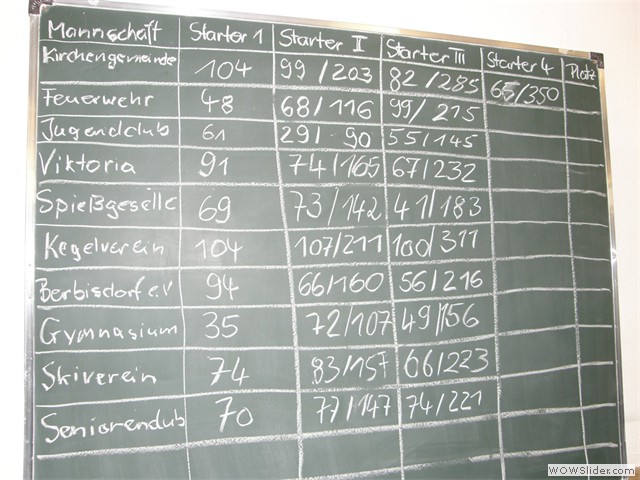 Mannschaft Starter 1 Starter II Starter III Starter 4 Platz
Kirchengemeinde 104 99/203 82/285 65/350
Feuerwehr 48 68/116 99/215
Jugendclub 61 29/90 55/145
Viktoria 91 74/165 67/232
Spießgeselle 69 73/142 41/183
Kegelverein 104 107/211 100/311
Berbisdorf e.V 94 66/160 56/216
Gymnasium 35 72/107 49/156
Skiverein 74 83/157 66/223
Seniorenclub 70 77/147 74/221
WOWSlider.com